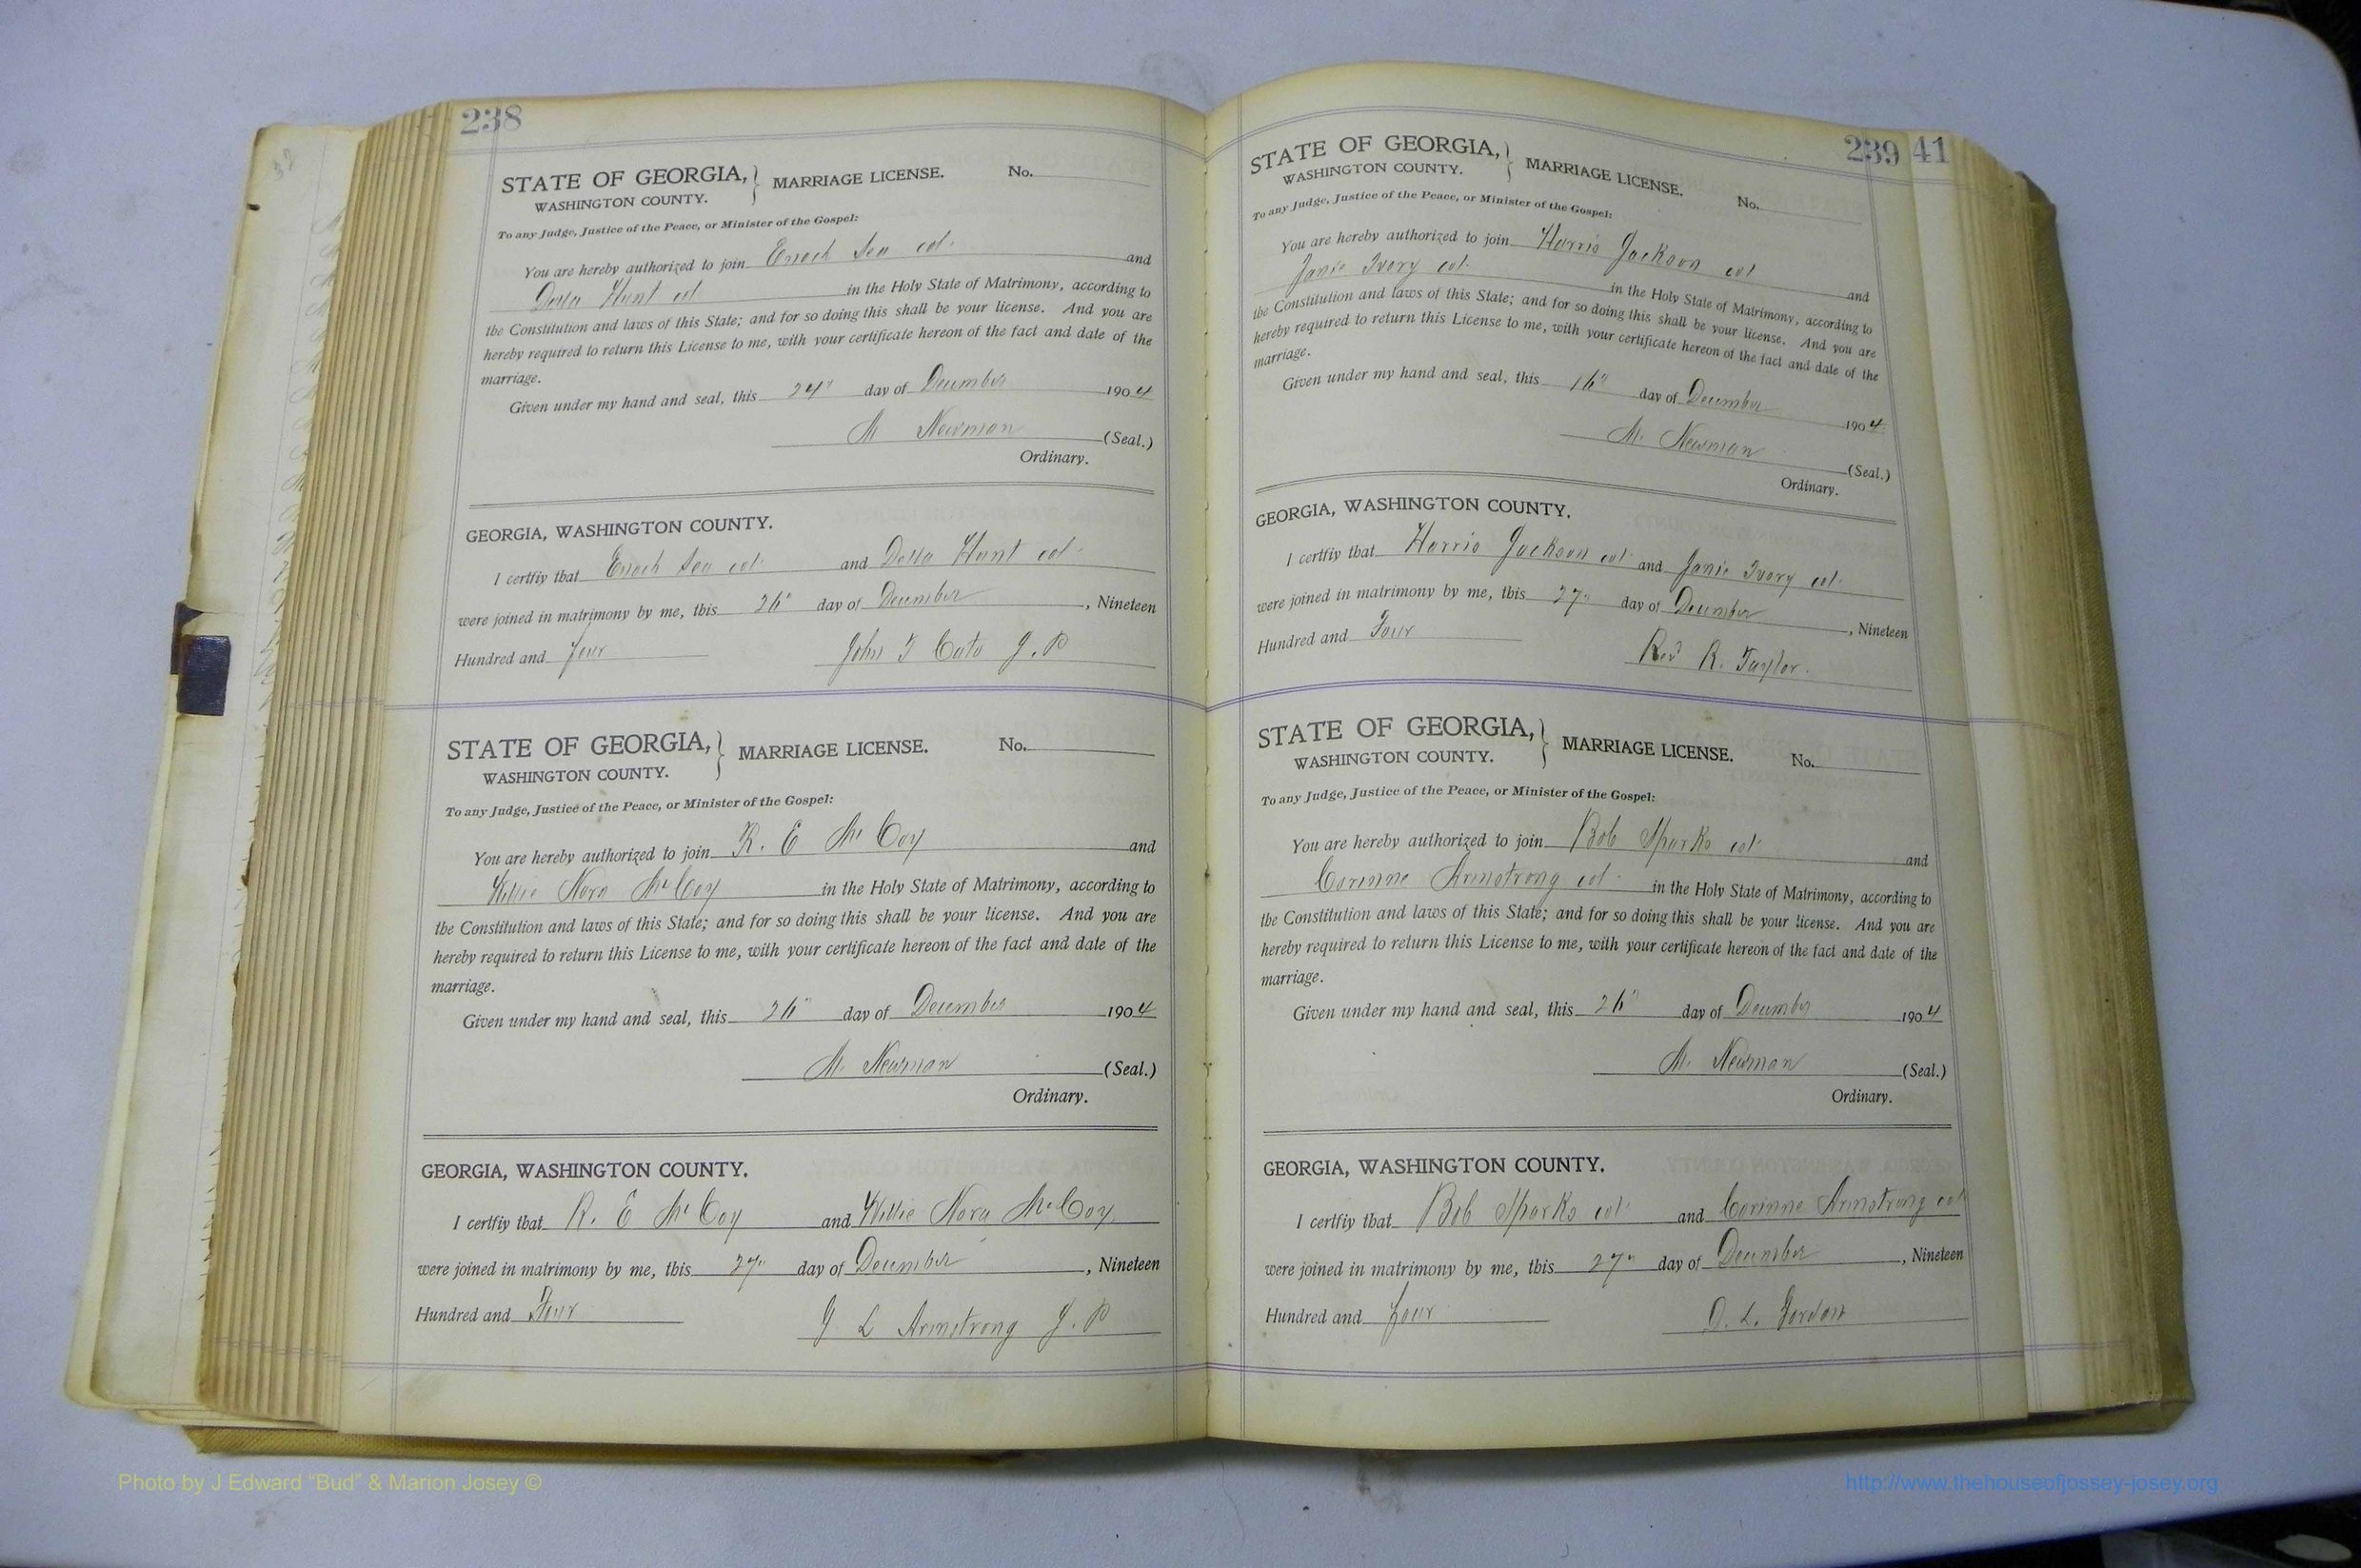 238
STATE OF GEORGIA, } MARRIAGE LICENSE. No.
WASHINGTON COUNTY.
To any Judge, Justice of the Peace, or Minister of the Gospel:
You are hereby authorized to join Enoch col. and
Della Hunt col. in the Holy State of Matrimony, according to
the Constitution and laws of this State; and for so doing this shall be your license. And you are
hereby required to return this License to me, with your certificate hereon of the fact and date of the
marriage.
Given under my hand and seal, this 24" day of December 1904
M Newman (Seal.)
Ordinary.
GEORGIA, WASHINGTON COUNTY.
I certfiy that Enoch col. and Della Hunt col.
were joined in matrimony by me, this 26" day of December, Nineteen
Hundred and four John J. P
STATE OF GEORGIA, } MARRIAGE LICENSE. No.
WASHINGTON COUNTY.
To any Judge, Justice of the Peace, or Minister of the Gospel:
You are hereby authorized to join R. E McCoy and
Willie Nora McCoy in the Holy State of Matrimony, according to
the Constitution and laws of this State; and for so doing this shall be your license. And you are
hereby required to return this License to me, with your certificate hereon of the fact and date of the
marriage.
Given under my hand and seal, this 26" day of December 1904
M. Newman (Seal.)
Ordinary.
GEORGIA, WASHINGTON COUNTY.
I certfiy that R. E McCoy and Willie Nora McCoy
were joined in matrimony by me, this 27" day of December, Nineteen
Hundred and Four J L Armstrong J. P
239 41
STATE OF GEORGIA, } MARRIAGE LICENSE. No.
WASHINGTON COUNTY.
To any Judge, Justice of the Peace, or Minister of the Gospel:
You are hereby authorized to join Harris Jackson col and
Janie Ivory col. in the Holy State of Matrimony, according to
the Constitution and laws of this State; and for so doing this shall be your license. And you are
hereby required to return this License to me, with your certificate hereon of the fact and date of the
marriage.
Given under my hand and seal, this 16" day of December 1904
M. Newman (Seal.)
Ordinary.
GEORGIA, WASHINGTON COUNTY.
I certfiy that Harris Jackson col. and Janie Ivory col.
were joined in matrimony by me, this 27" day of December, Nineteen
Hundred and Four Rev R. Taylor.
STATE OF GEORGIA, } MARRIAGE LICENSE. No.
WASHINGTON COUNTY.
To any Judge, Justice of the Peace, or Minister of the Gospel:
You are hereby authorized to join Bob Sparks col. and
Corinne Armstrong col. in the Holy State of Matrimony, according to
the Constitution and laws of this State; and for so doing this shall be your license. And you are
hereby required to return this License to me, with your certificate hereon of the fact and date of the
marriage.
Given under my hand and seal, this 26" day of December 1904
M. Newman (Seal.)
Ordinary.
GEORGIA, WASHINGTON COUNTY.
I certfiy that Bob Sparks col. and Corinne Armstrong col
were joined in matrimony by me, this 27" day of December, Nineteen
Hundred and four L. Gordon
Photo by J Edward "Bud" & Marion Josey ©
http://www.thehouseofjossey-josey.org